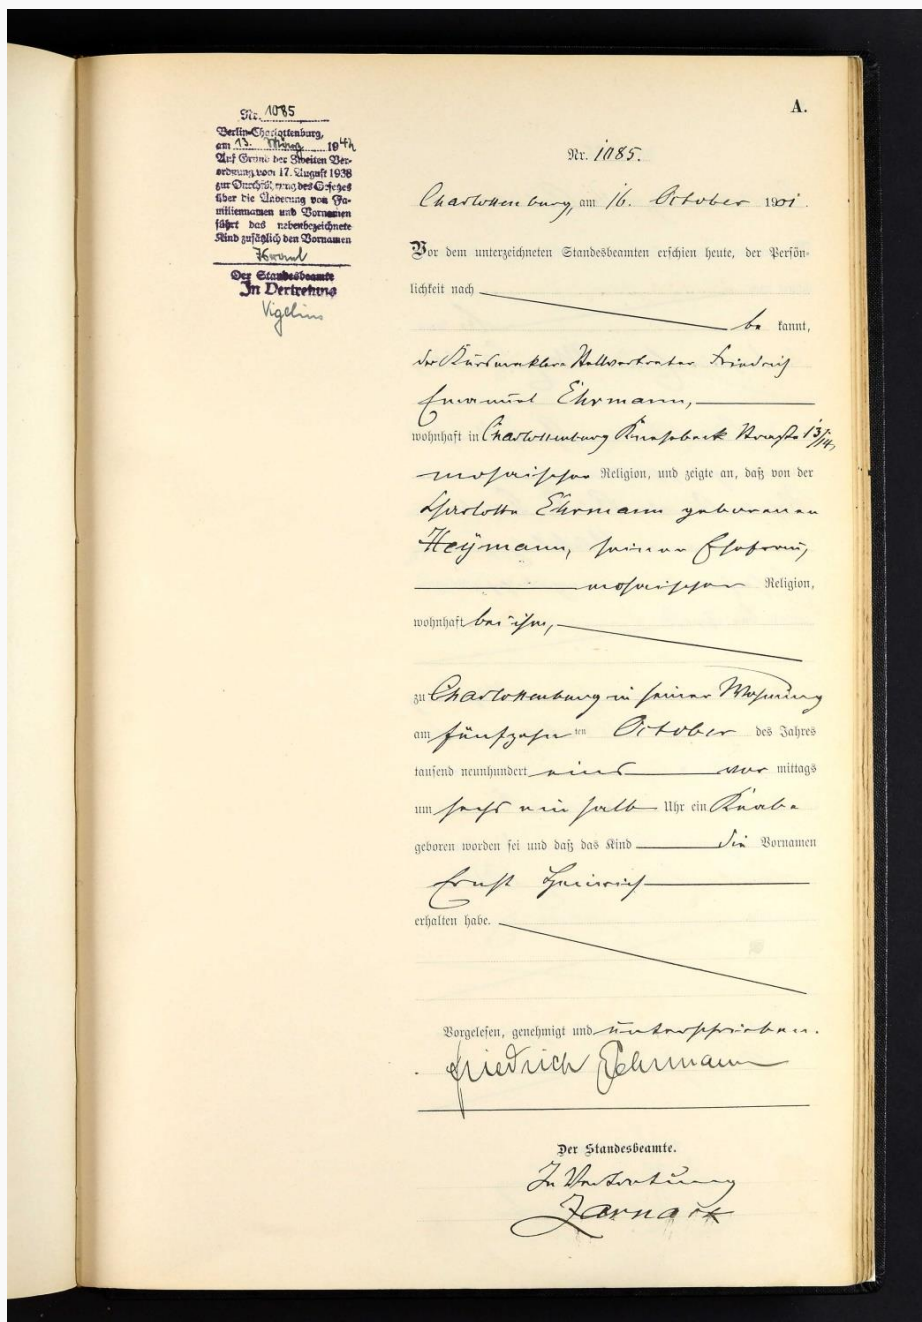 Nr. 1085
Berlin-Charlottenburg,
am 13. März 194
Auf Grund der Zweiten Ver-
ordnung vom 17. August 1938
zur Durchführung des Gesetzes
über die Änderung von Fa-
miliennamen und Vornamen
führt das nebenbezeichnete
Kind zusätzlich den Vornamen
Israel
Der Standesbeamte
In Vertretung
A.
Nr. 1085.
Charlottenburg, am 16. October 1901.
Vor dem unterzeichneten Standesbeamten erschien heute, der Persön-
lichkeit nach
be kannt,
der Kursmakler-Stellvertreter Friedrich
Emanuel Ehrmann,
wohnhaft in Charlottenburg Knesebeck Straße 13/14,
mosaischer Religion, und zeigte an, daß von der
Charlotte Ehrmann geborenen
Heymann, seiner Ehefrau,
mosaischer Religion,
wohnhaft bei ihm,
zu Charlottenburg in seiner Wohnung
am fünfzehn ten October des Jahres
tausend neunhundert eins vor mittags
um sechs ein halb Uhr ein Knabe
geboren worden sei und daß das Kind die Vornamen
Ernst Heinrich
erhalten habe.
Vorgelesen, genehmigt und unterschrieben.
Friedrich Ehrmann
Der Standesbeamte.
In Vertretung
Zarnack